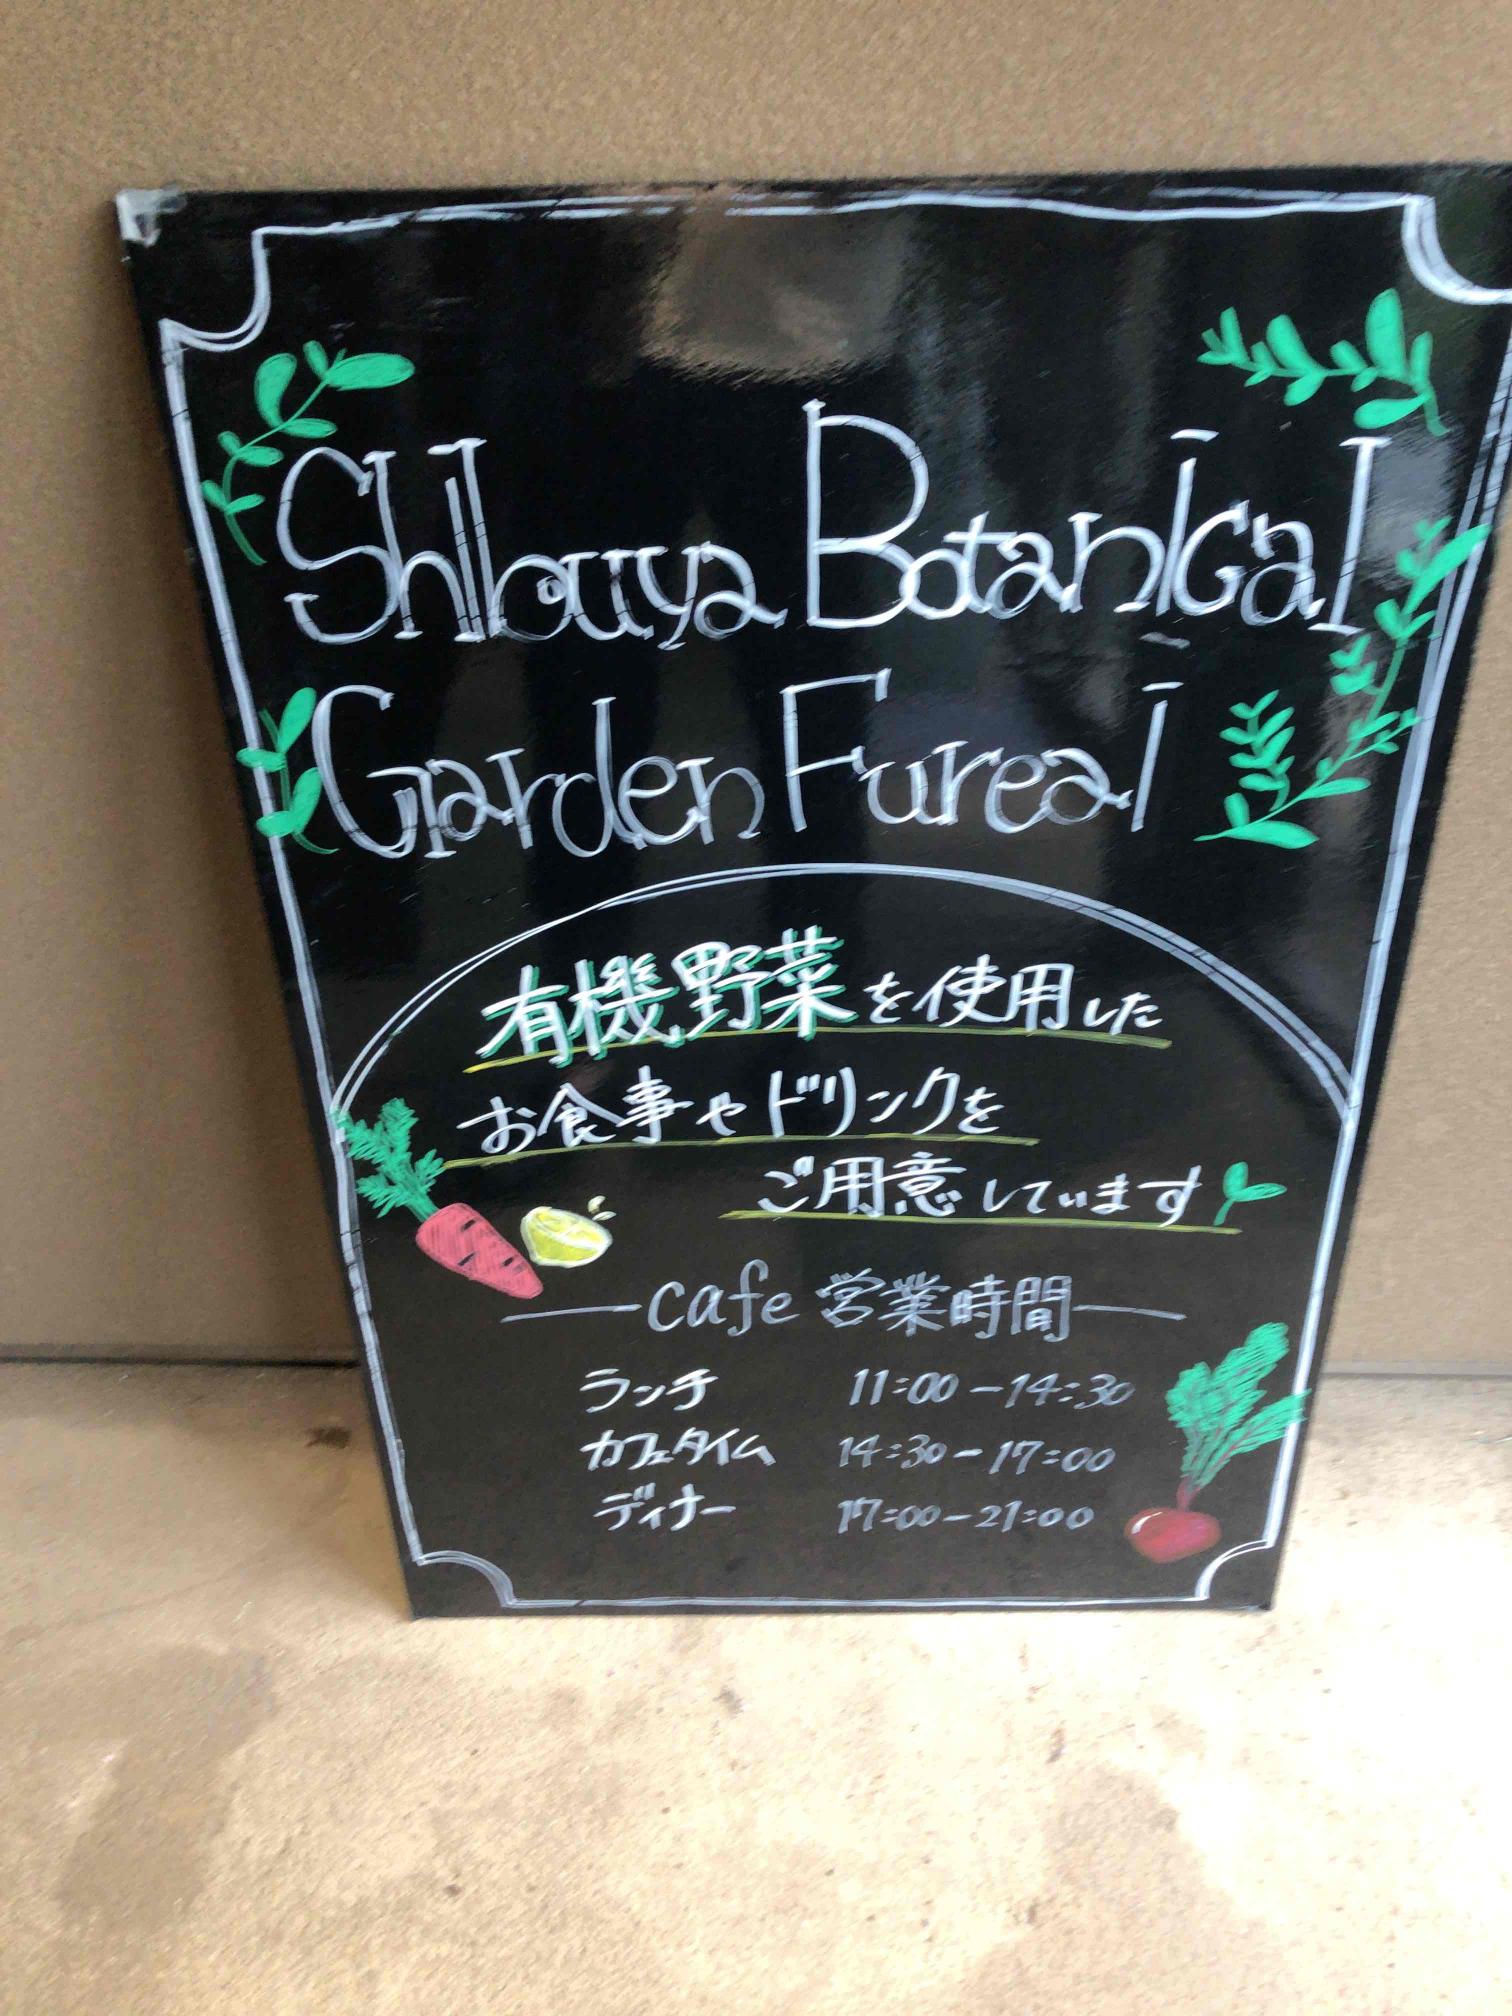 Shibuya Botanical
Garden Fureai
有機野菜を使用した
お食事やドリンクを
ご用意しています
cafe 営業時間
ランチ 11:00-14:30
カフェタイム 14:30-17:00
ディナー 17:00-21:00